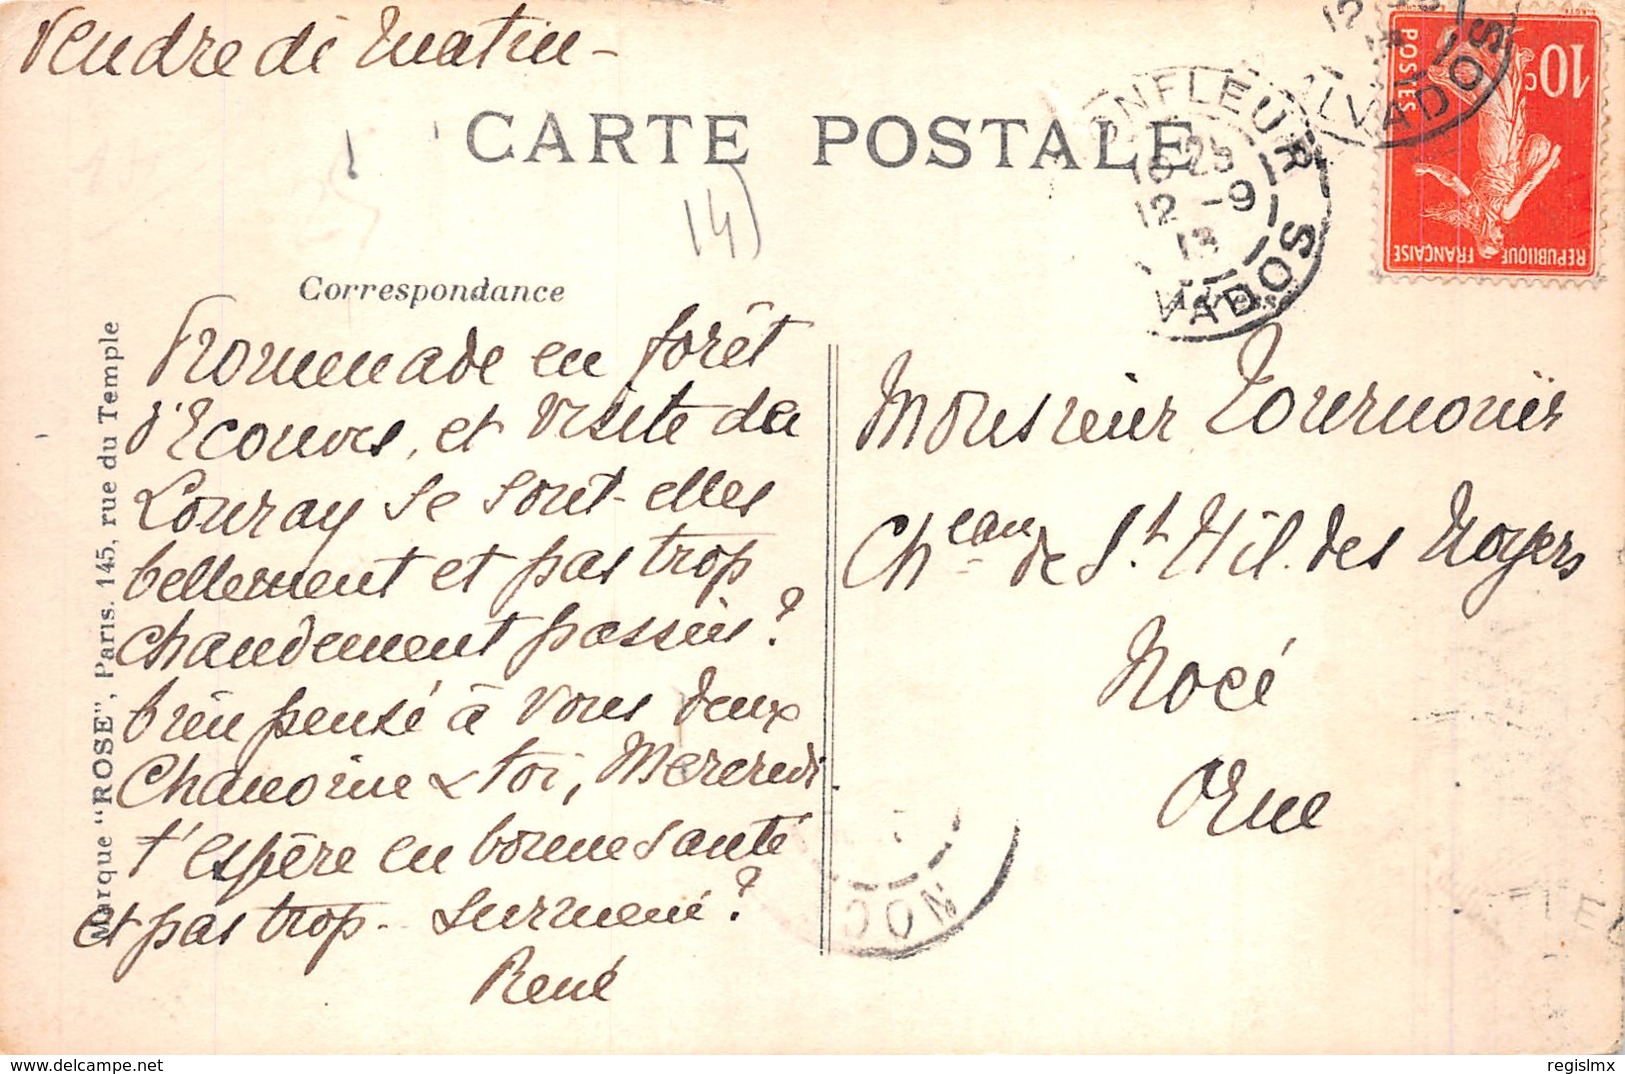 Vendredi matin -
CARTE POSTALE
(14)
Correspondance
Promenade en forêt
d'Ecouves, et visite de
Louray se sont-elles
bellement et pas trop
chaudement passées?
bien pensé à vous deux
Chanoine & toi, Mercredi.
t'espère en bonne santé
et pas trop - surmené?
René
Marque "ROSE", Paris. 145, rue du Temple
Monsieur Tournouër
Cheau de St Hil. des Noyers
Nocé
Orne
10c
POSTES
REPUBLIQUE FRANÇAISE
NFLEUR
12 -9
13
VADOS
LVADOS
NOC
regisImx